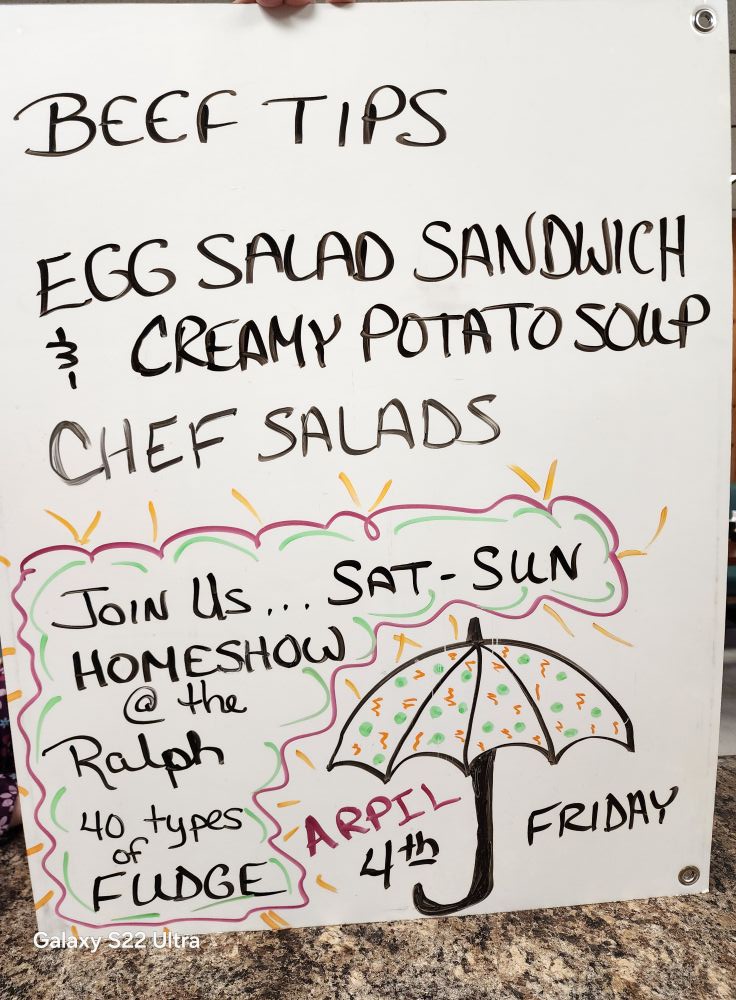 BEEF TIPS
EGG SALAD SANDWICH
& CREAMY POTATO SOUP
CHEF SALADS
JOIN US... SAT-SUN
HOMESHOW
@ the
Ralph
40 types
of
FUDGE
ARPIL
4th
FRIDAY
Galaxy S22 Ultra